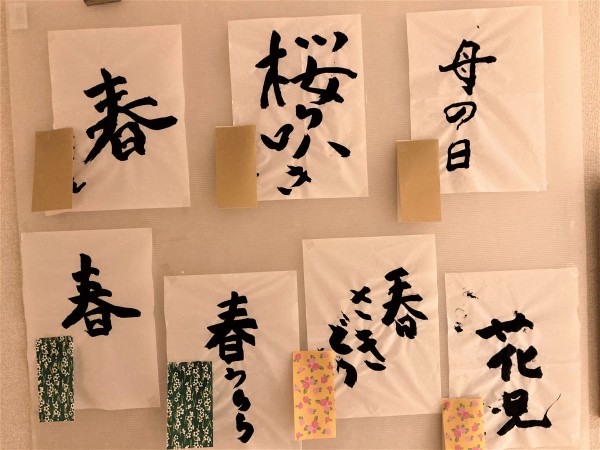 春
桜ら咲き
母の日
春
春うらら
春
さきどり
花見